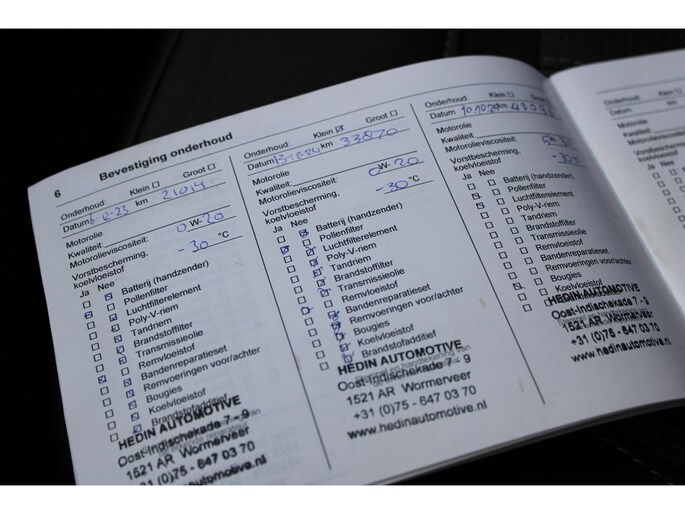 6 Bevestiging onderhoud
Onderhoud: Klein ☐ Groot ☐
Datum 6 2-23 km 21014
Motorolie
Kwaliteit:
Motorolieviscositeit: 0 W-20
Vorstbescherming,
koelvloeistof - 30 °C
Ja Nee
Batterij (handzender)
Pollenfilter
Luchtfilterelement
Poly-V-riem
Tandriem
Brandstoffilter
Transmissieolie
Remvloeistof
Bandenreparatieset
Remvoeringen voor/achter
Bougies
Koelvloeistof
Brandstofadditief
HEDIN AUTOMOTIVE
Oost-Indischekade 7 - 9
1521 AR Wormerveer
+31 (0)75 - 647 03 70
www.hedinautomotive.nl
Onderhoud: Klein ☑ Groot ☐
Datum km 33870
Motorolie
Kwaliteit:
Motorolieviscositeit: 0W-20
Vorstbescherming,
koelvloeistof -30 °C
Ja Nee
Batterij (handzender)
Pollenfilter
Luchtfilterelement
Poly-V-riem
Tandriem
Brandstoffilter
Transmissieolie
Remvloeistof
Bandenreparatieset
Remvoeringen voor/achter
Bougies
Koelvloeistof
Brandstofadditief
HEDIN AUTOMOTIVE
Oost-Indischekade 7 - 9
1521 AR Wormerveer
+31 (0)75 - 647 03 70
www.hedinautomotive.nl
Onderhoud: Klein ☐ Groot
Datum km
Motorolie
Kwaliteit:
Motorolieviscositeit:
Vorstbescherming,
koelvloeistof -30
Ja Nee
Batterij (handzender)
Pollenfilter
Luchtfilterelement
Poly-V-riem
Tandriem
Brandstoffilter
Transmissieolie
Remvloeistof
Bandenreparatieset
Remvoeringen voor/achter
Bougies
Koelvloeistof
HEDIN AUTOMOTIVE
Oost-Indischekade 7 - 9
1521 AR Wormerveer
+31 (0)75 - 647 03 70
www.hedinautomotive.nl
Onderhoud:
Datum
Motorolie
Kwaliteit:
Motorolieviscositeit
Vorstbescherming
koelvloeistof
Ja Nee